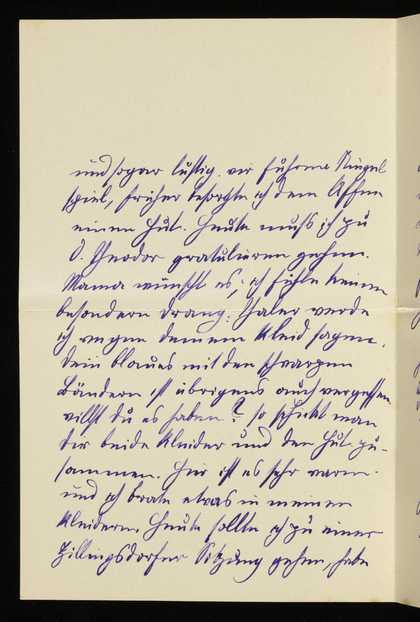 und sogar lustig. wir fuhren Ringel
spiel, früher besorgte ich dem Affen
einen Hut. Heute muß ich zu
O. Theodor gratulieren gehen.
Mama wünscht es; ich fühle keinen
besonderen Drang. Thaler werde
ich wegen deinem Kleid sagen.
Dein blaues mit den schwarzen
Bändern ist übrigens auch vergessen
willst du es haben? so schickt man
dir beide Kleider und den Hut zu-
sammen. Hier ist es sehr warm.
und ich brate etwas in meinen
Kleidern. Heute sollte ich zu einer
Zillingsdorfer Sitzung gehen, habe